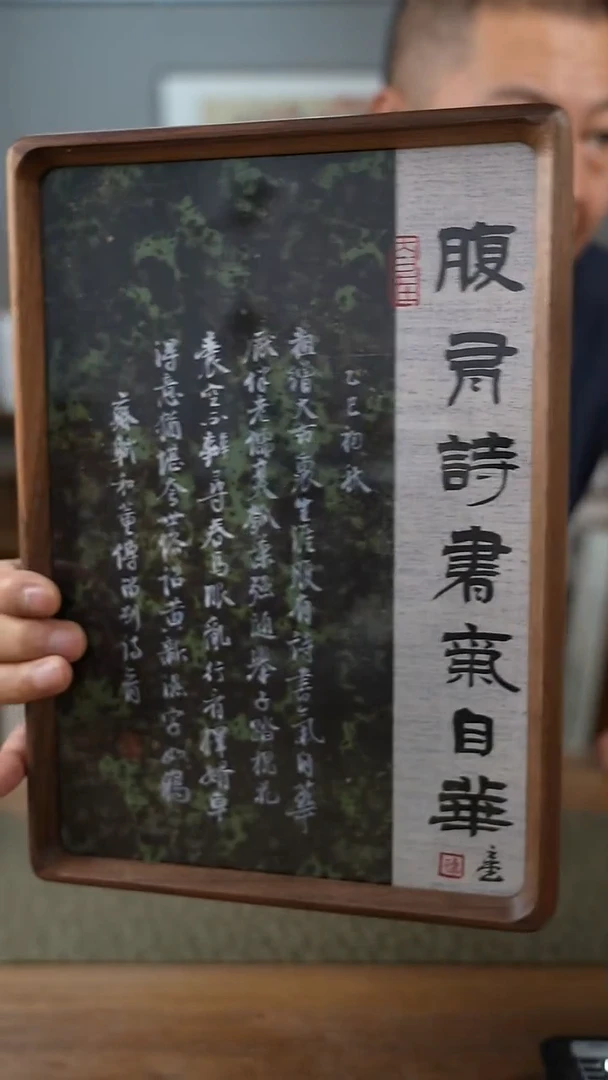 腹有詩書氣自華
乙巳初秋
粗繒大布裹生涯腹有詩書氣自華
厭伴老儒烹瓠葉強隨舉子踏槐花
囊空不辦尋春馬眼亂行看擇婿車
得意猶堪夸世俗詔黃新濕字如鴉
蘇軾和董傳留別